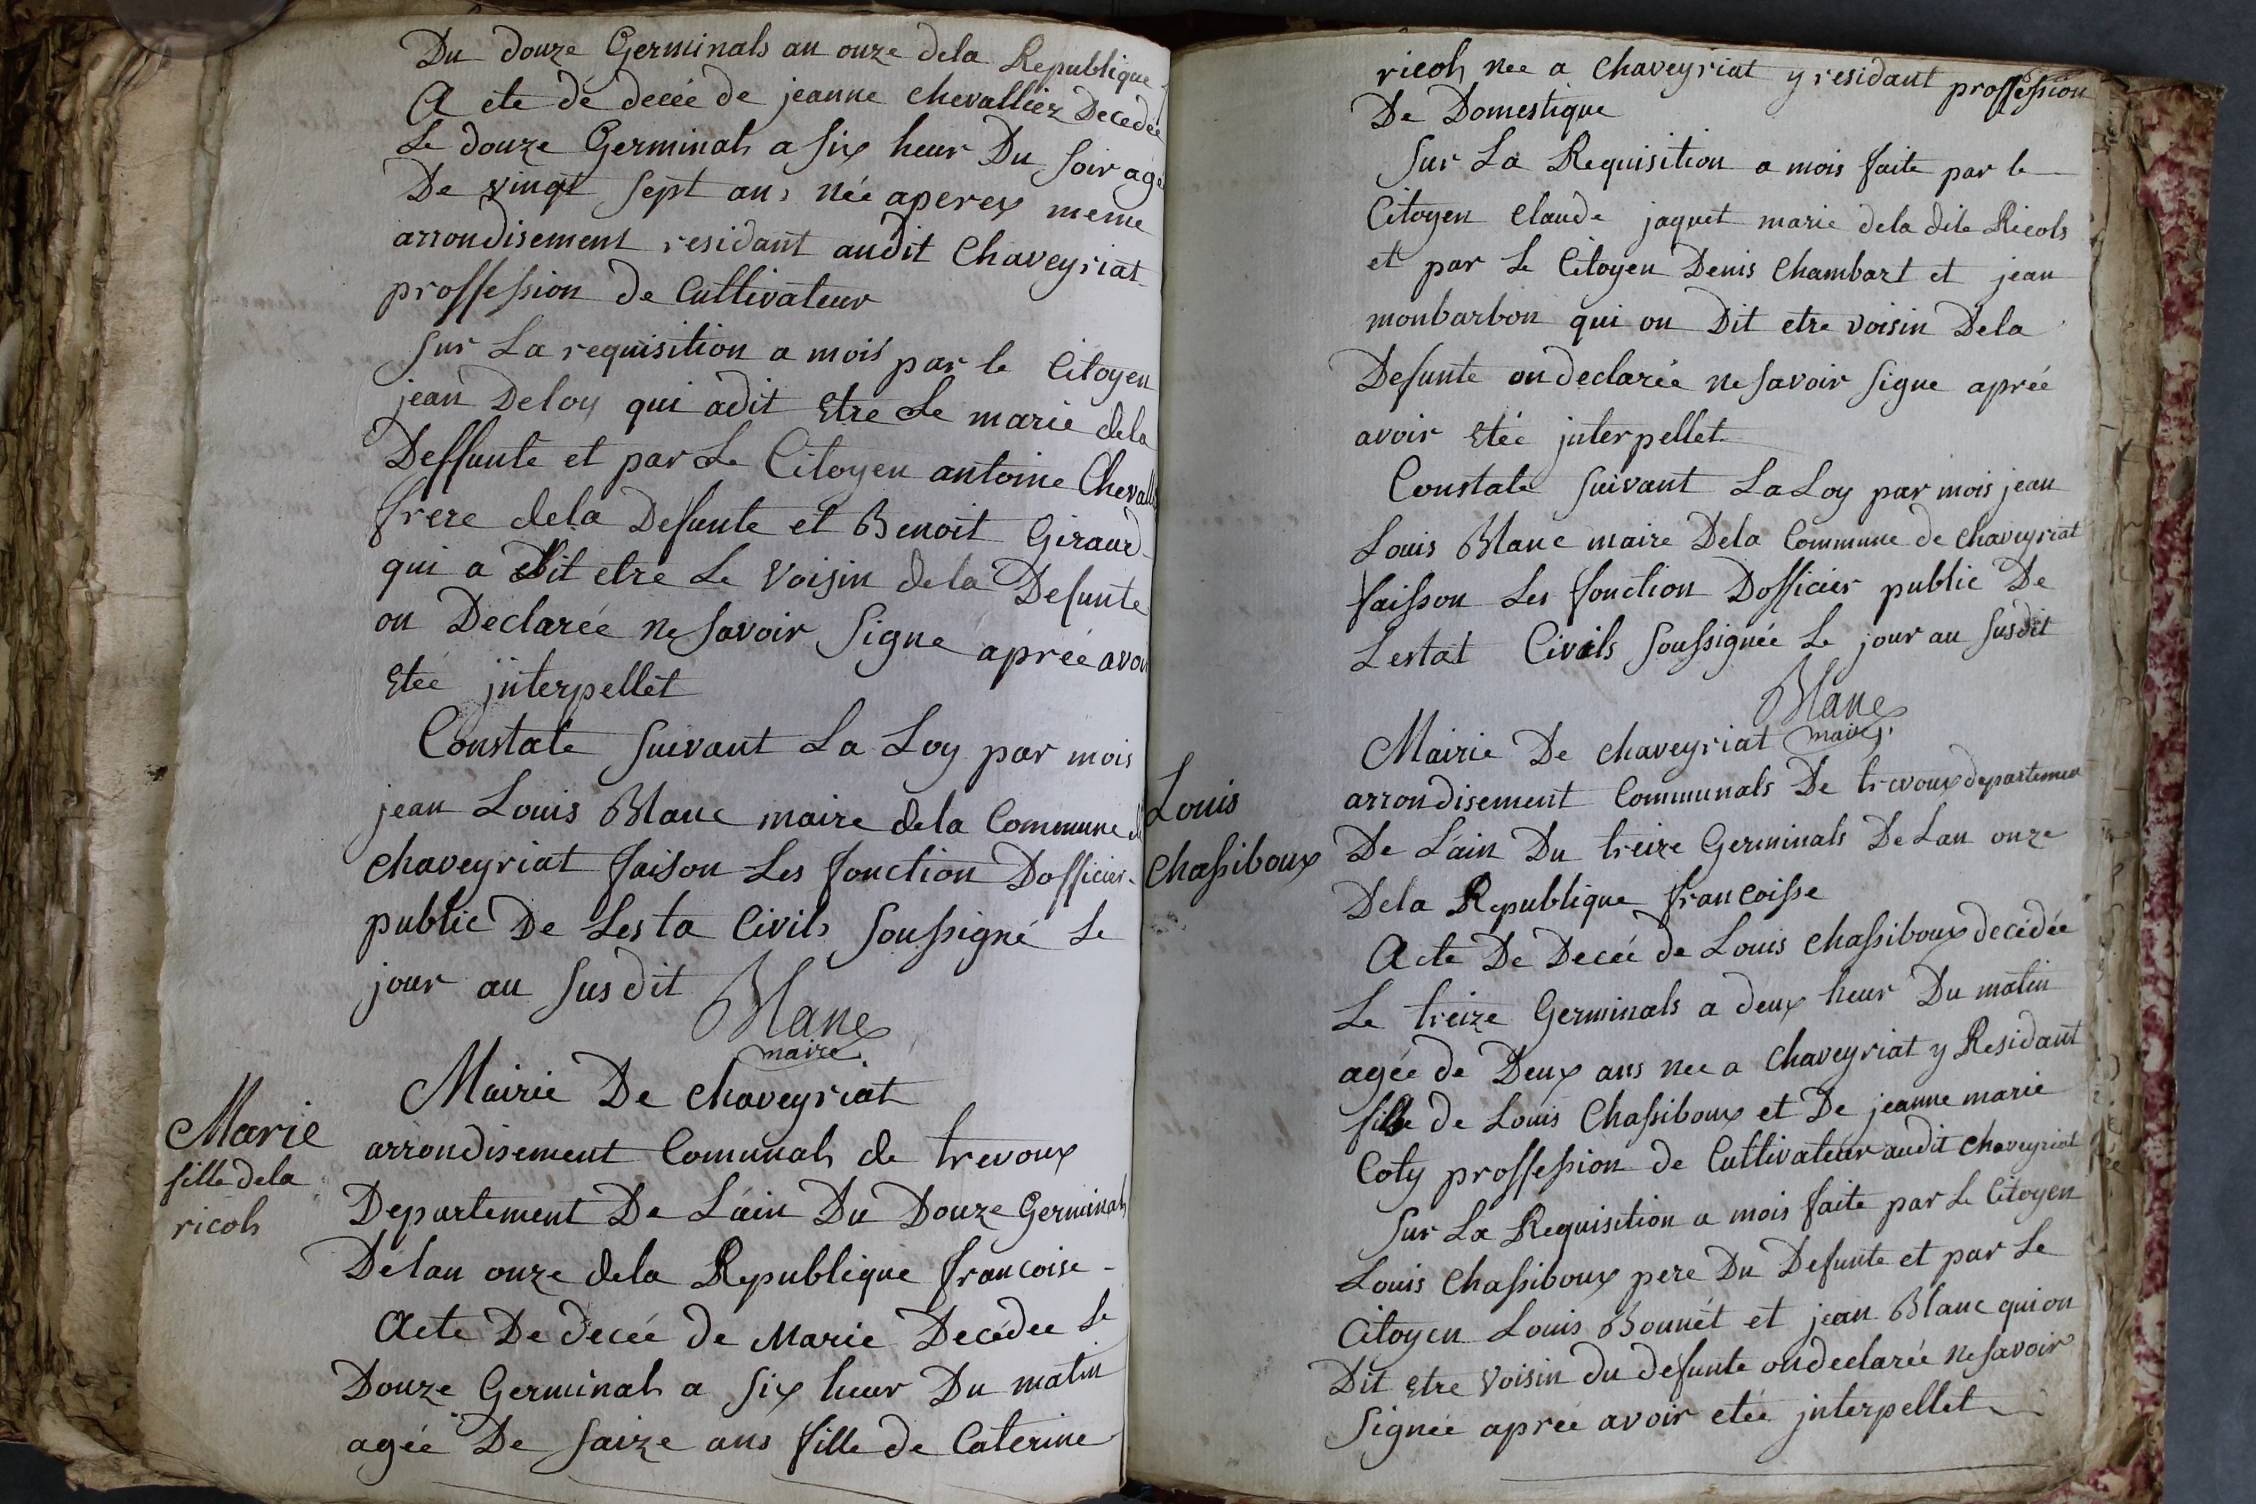 Du douze Germinals an onze dela Republique
A cte de decée de jeanne chevallier Decedée
Le douze Germinals a six heur Du soir agé
De vingt sept ans née aperex meme
arrondisement residant audit Chaveyriat
proffession de Cultivateur
Sur La requisition a mois par le Citoyen
jean Deloy qui adit Etre Le marie dela
Deffunte et par Le Citoyen antoine Chevall
frere dela Defunte et Benoit Giraud
qui a dit etre Le Voisin dela Defunte
on Declarée ne Savoir Signe aprée avoi
Etée jnterpellet
Constate Suivant La Loy par mois
jean Louis Blanc maire dela Commune d
chaveyriat faison Les fonction Dofficier
public De Lesta Civils Soussigné Le
jour au Susdit
Blanc
maire
Mairie De chaveyriat
Marie
fille dela
ricols
arrondisement Comunals de trevoux
Departement De Lain Du Douze Germinals
Delan onze dela Republique francoise
Acte De decée de Marie Decédee Le
Douze Germinals a Six heur Du matin
agée De Saize ans fille de Caterine
ricols nee a Chaveyriat y residant proffession
De Domestique
Sur La Requisition a mois faite par le
Citoyen Claude jaquet marie dela dite Ricols
et par Le Citoyen Denis Chambart et jean
monbarbon qui on Dit etre voisin Dela
Defunte on declarée ne Savoir Signe aprée
avoir Etée jnterpellet
Constate Suivant La Loy par mois jean
Louis Blanc maire Dela Commune de Chaveyriat
faisson Les fonction Dofficier public De
Lestat Civils Soussignée Le jour au Susdit
Blanc
maire
Mairie De chaveyriat
Louis
Chassiboux
arrondisement Communals De trevoux departemen
De Lain Du treize Germinals De Lan onze
Dela Republique francoisse
Acte De Decée de Louis Chassiboux decédée
Le treize Germinals a deux heur Du matin
agée de Deux ans nee a Chaveyriat y Residant
fils de Louis Chassiboux et De jeanne marie
Coty proffession de Cultivateur audit Chaveyriat
Sur La Requisition a mois faite par Le Citoyen
Louis Chassiboux pere Du Defunte et par Le
Citoyen Louis Bonnet et jean Blanc qui on
Dit Etre Voisin du defunte on declarée ne Savoir
Signée aprée avoir etée jnterpellet